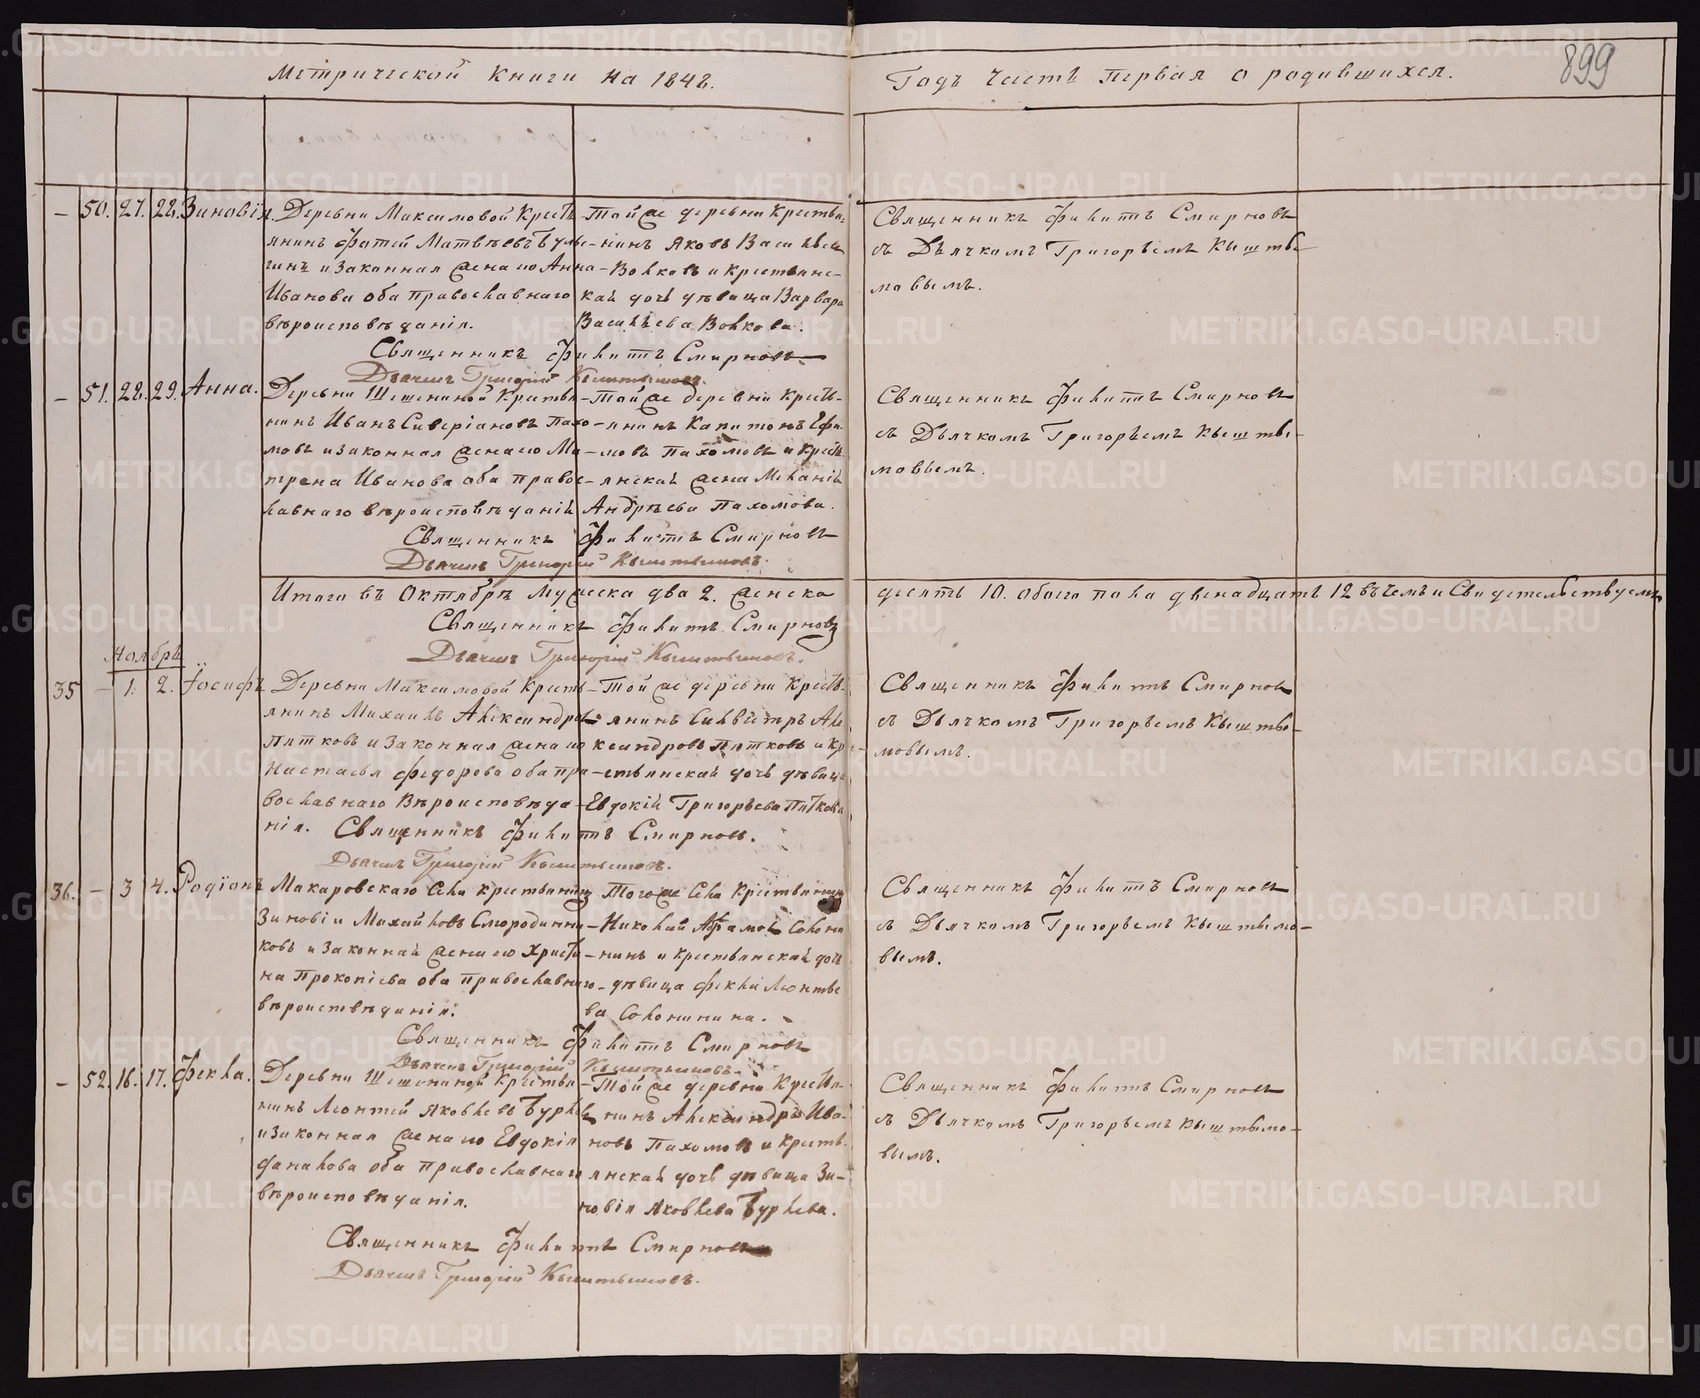 Метрической Книги на 1848.
Годъ Часть Первая о родившихся.
899
– 50. 27. 28. Зиновія.
Деревни Максимовой Кресть-
янинъ Фотей Матвѣевъ
и Законная жена его Анна
Иванова оба Православнаго
вѣроисповѣданія.
Той же деревни Крестья-
нинъ Яковъ Васильевъ
Волковъ и Крестьянс-
кая дочь дѣвица Варвара
Васильева Волкова.
Священникъ Филиппъ Смирновъ
Дьячекъ Григорій Кыштымовъ.
Священникъ Филиппъ Смирновъ
съ Дьячкомъ Григорьемъ Кышты-
мовымъ.
– 51. 28. 29. Анна.
Деревни Шешениной Крестья-
нинъ Иванъ Сиверіановъ Пахо-
мовъ и законная жена его Ма-
трена Иванова оба Правос-
лавнаго вѣроисповѣданій
Той же деревни Кресть-
янинъ Капитонъ Ефи-
мовъ Пахомовъ и Кресть-
янская жена Меланій
Андрѣева Пахомова.
Священникъ Филиппъ Смирновъ
Дьячекъ Григорій Кыштымовъ.
Священникъ Филиппъ Смирновъ
съ Дьячкомъ Григорьемъ Кышты-
мовымъ.
Итого въ Октябрѣ Мужеска два 2. женска
десять 10. обоего пола двенадцать 12 въ чемъ и Свидетельствуемъ
Священникъ Филиппъ Смирновъ
Дьячекъ Григорій Кыштымовъ.
Ноябрь
35 – 1. 2. Іосифъ
Деревни Максимовой Кресть-
янинъ Михаилъ Александровъ
Пятковъ и Законная жена его
Настасья Федорова оба пра-
вославнаго Вѣроисповѣда-
нія.
Той же деревни Кресть-
янинъ Силвестръ Але-
ксандровъ Пятковъ и Кре-
стьянская дочь дѣвица
Евдокій Григорьева Пяткова
Священникъ Филиппъ Смирновъ.
Дьячекъ Григорій Кыштымовъ.
Священникъ Филиппъ Смирновъ
съ Дьячкомъ Григорьемъ Кышты-
мовымъ.
36. – 3 4. Родіонъ
Макаровскаго Села крестьянинъ
Зиновій Михайловъ Смородинни-
ковъ и Законная жена его Христи-
на Прокопіева оба православнаго
вѣроиствѣданія.
Того же Села Крестьянинъ
Николай Соломи-
нинъ и крестьянская дочь
дѣвица Фекла Леонтье-
ва Соломинина.
Священникъ Филиппъ Смирновъ
Дьячекъ Григорій Кыштымовъ.
Священникъ Филиппъ Смирновъ
съ Дьячкомъ Григорьемъ Кыштымо-
вымъ.
– 52. 16. 17. Фекла.
Деревни Шешениной Крестья-
нинъ Леонтей Яковлевъ Бурлевъ
и Законная жена его Евдокія
Фаналова оба Православнаго
вѣроисповѣданія.
Той же деревни Крестья-
нинъ Александръ Ива-
новъ Пахомовъ и кресть-
янская дочь дѣвица Зи-
новія Яковлева Бурлева.
Священникъ Филиппъ Смирновъ
Дьячекъ Григорій Кыштымовъ.
Священникъ Филиппъ Смирновъ
съ Дьячкомъ Григорьемъ Кыштымо-
вымъ.
METRIKI.GASO-URAL.RU